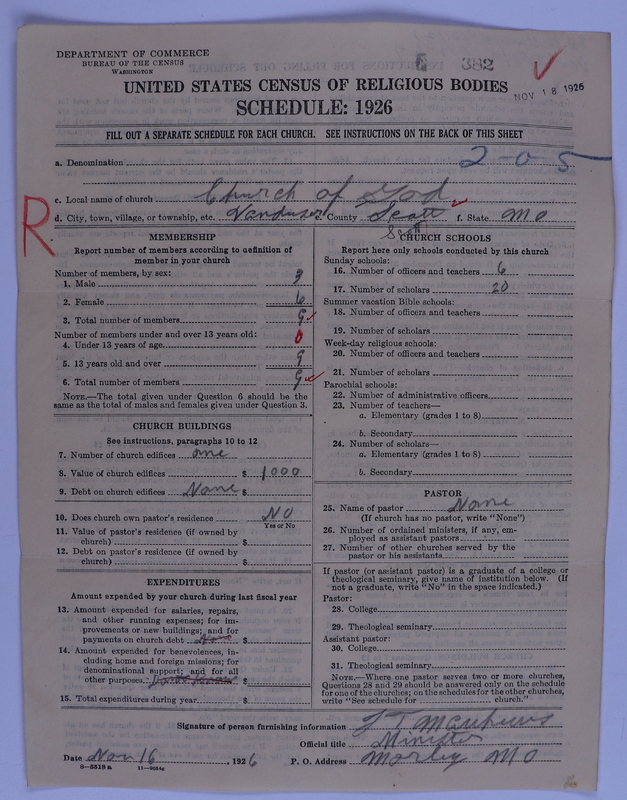 DEPARTMENT OF COMMERCE
BUREAU OF THE CENSUS
WASHINGTON
382
NOV 18 1926
UNITED STATES CENSUS OF RELIGIOUS BODIES
SCHEDULE: 1926
FILL OUT A SEPARATE SCHEDULE FOR EACH CHURCH. SEE INSTRUCTIONS ON THE BACK OF THIS SHEET
a. Denomination
2-0-5
R
c. Local name of church Church of God
d. City, town, village, or township, etc. Vanduser County Scott f. State Mo
Scott
MEMBERSHIP
Report number of members according to definition of
member in your church
Number of members, by sex:
1. Male 3
2. Female 6
3. Total number of members 9
Number of members under and over 13 years old:
4. Under 13 years of age 0
5. 13 years old and over 9
6. Total number of members 9
NOTE.—The total given under Question 6 should be the
same as the total of males and females given under Question 3.
CHURCH BUILDINGS
See instructions, paragraphs 10 to 12
7. Number of church edifices one
8. Value of church edifices $ 1000
9. Debt on church edifices None $
10. Does church own pastor's residence No
Yes or No
11. Value of pastor's residence (if owned by
church) $
12. Debt on pastor's residence (if owned by
church) $
EXPENDITURES
Amount expended by your church during last fiscal year
13. Amount expended for salaries, repairs,
and other running expenses; for im-
provements or new buildings; and for
payments on church debt $
14. Amount expended for benevolences, in-
cluding home and foreign missions; for
denominational support; and for all
other purposes. $
15. Total expenditures during year $
CHURCH SCHOOLS
Report here only schools conducted by this church
Sunday schools:
16. Number of officers and teachers 6
17. Number of scholars 20
Summer vacation Bible schools:
18. Number of officers and teachers
19. Number of scholars
Week-day religious schools:
20. Number of officers and teachers
21. Number of scholars
Parochial schools:
22. Number of administrative officers
23. Number of teachers—
a. Elementary (grades 1 to 8)
b. Secondary
24. Number of scholars—
a. Elementary (grades 1 to 8)
b. Secondary
PASTOR
25. Name of pastor None
(If church has no pastor, write "None")
26. Number of ordained ministers, if any, em-
ployed as assistant pastors
27. Number of other churches served by the
pastor or his assistants
If pastor (or assistant pastor) is a graduate of a college or
theological seminary, give name of institution below. (If
not a graduate, write "No" in the space indicated.)
Pastor:
28. College
29. Theological seminary
Assistant pastor:
30. College
31. Theological seminary
NOTE.—Where one pastor serves two or more churches,
Questions 28 and 29 should be answered only on the schedule
for one of the churches; on the schedules for the other churches,
write "See schedule for church."
Signature of person furnishing information J T Mathews
Official title Minister
Date Nov 16, 1926 P. O. Address Morley Mo
8—5518a 11—9554a